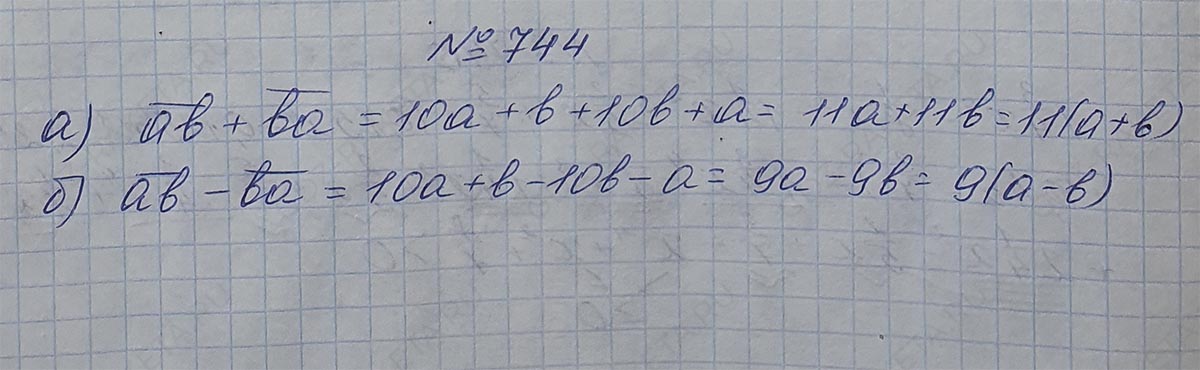 № 744
а) a̅b̅ + b̅a̅ = 10a + b + 10b + a = 11a + 11b = 11(a + b)
б) a̅b̅ - b̅a̅ = 10a + b - 10b - a = 9a - 9b = 9(a - b)